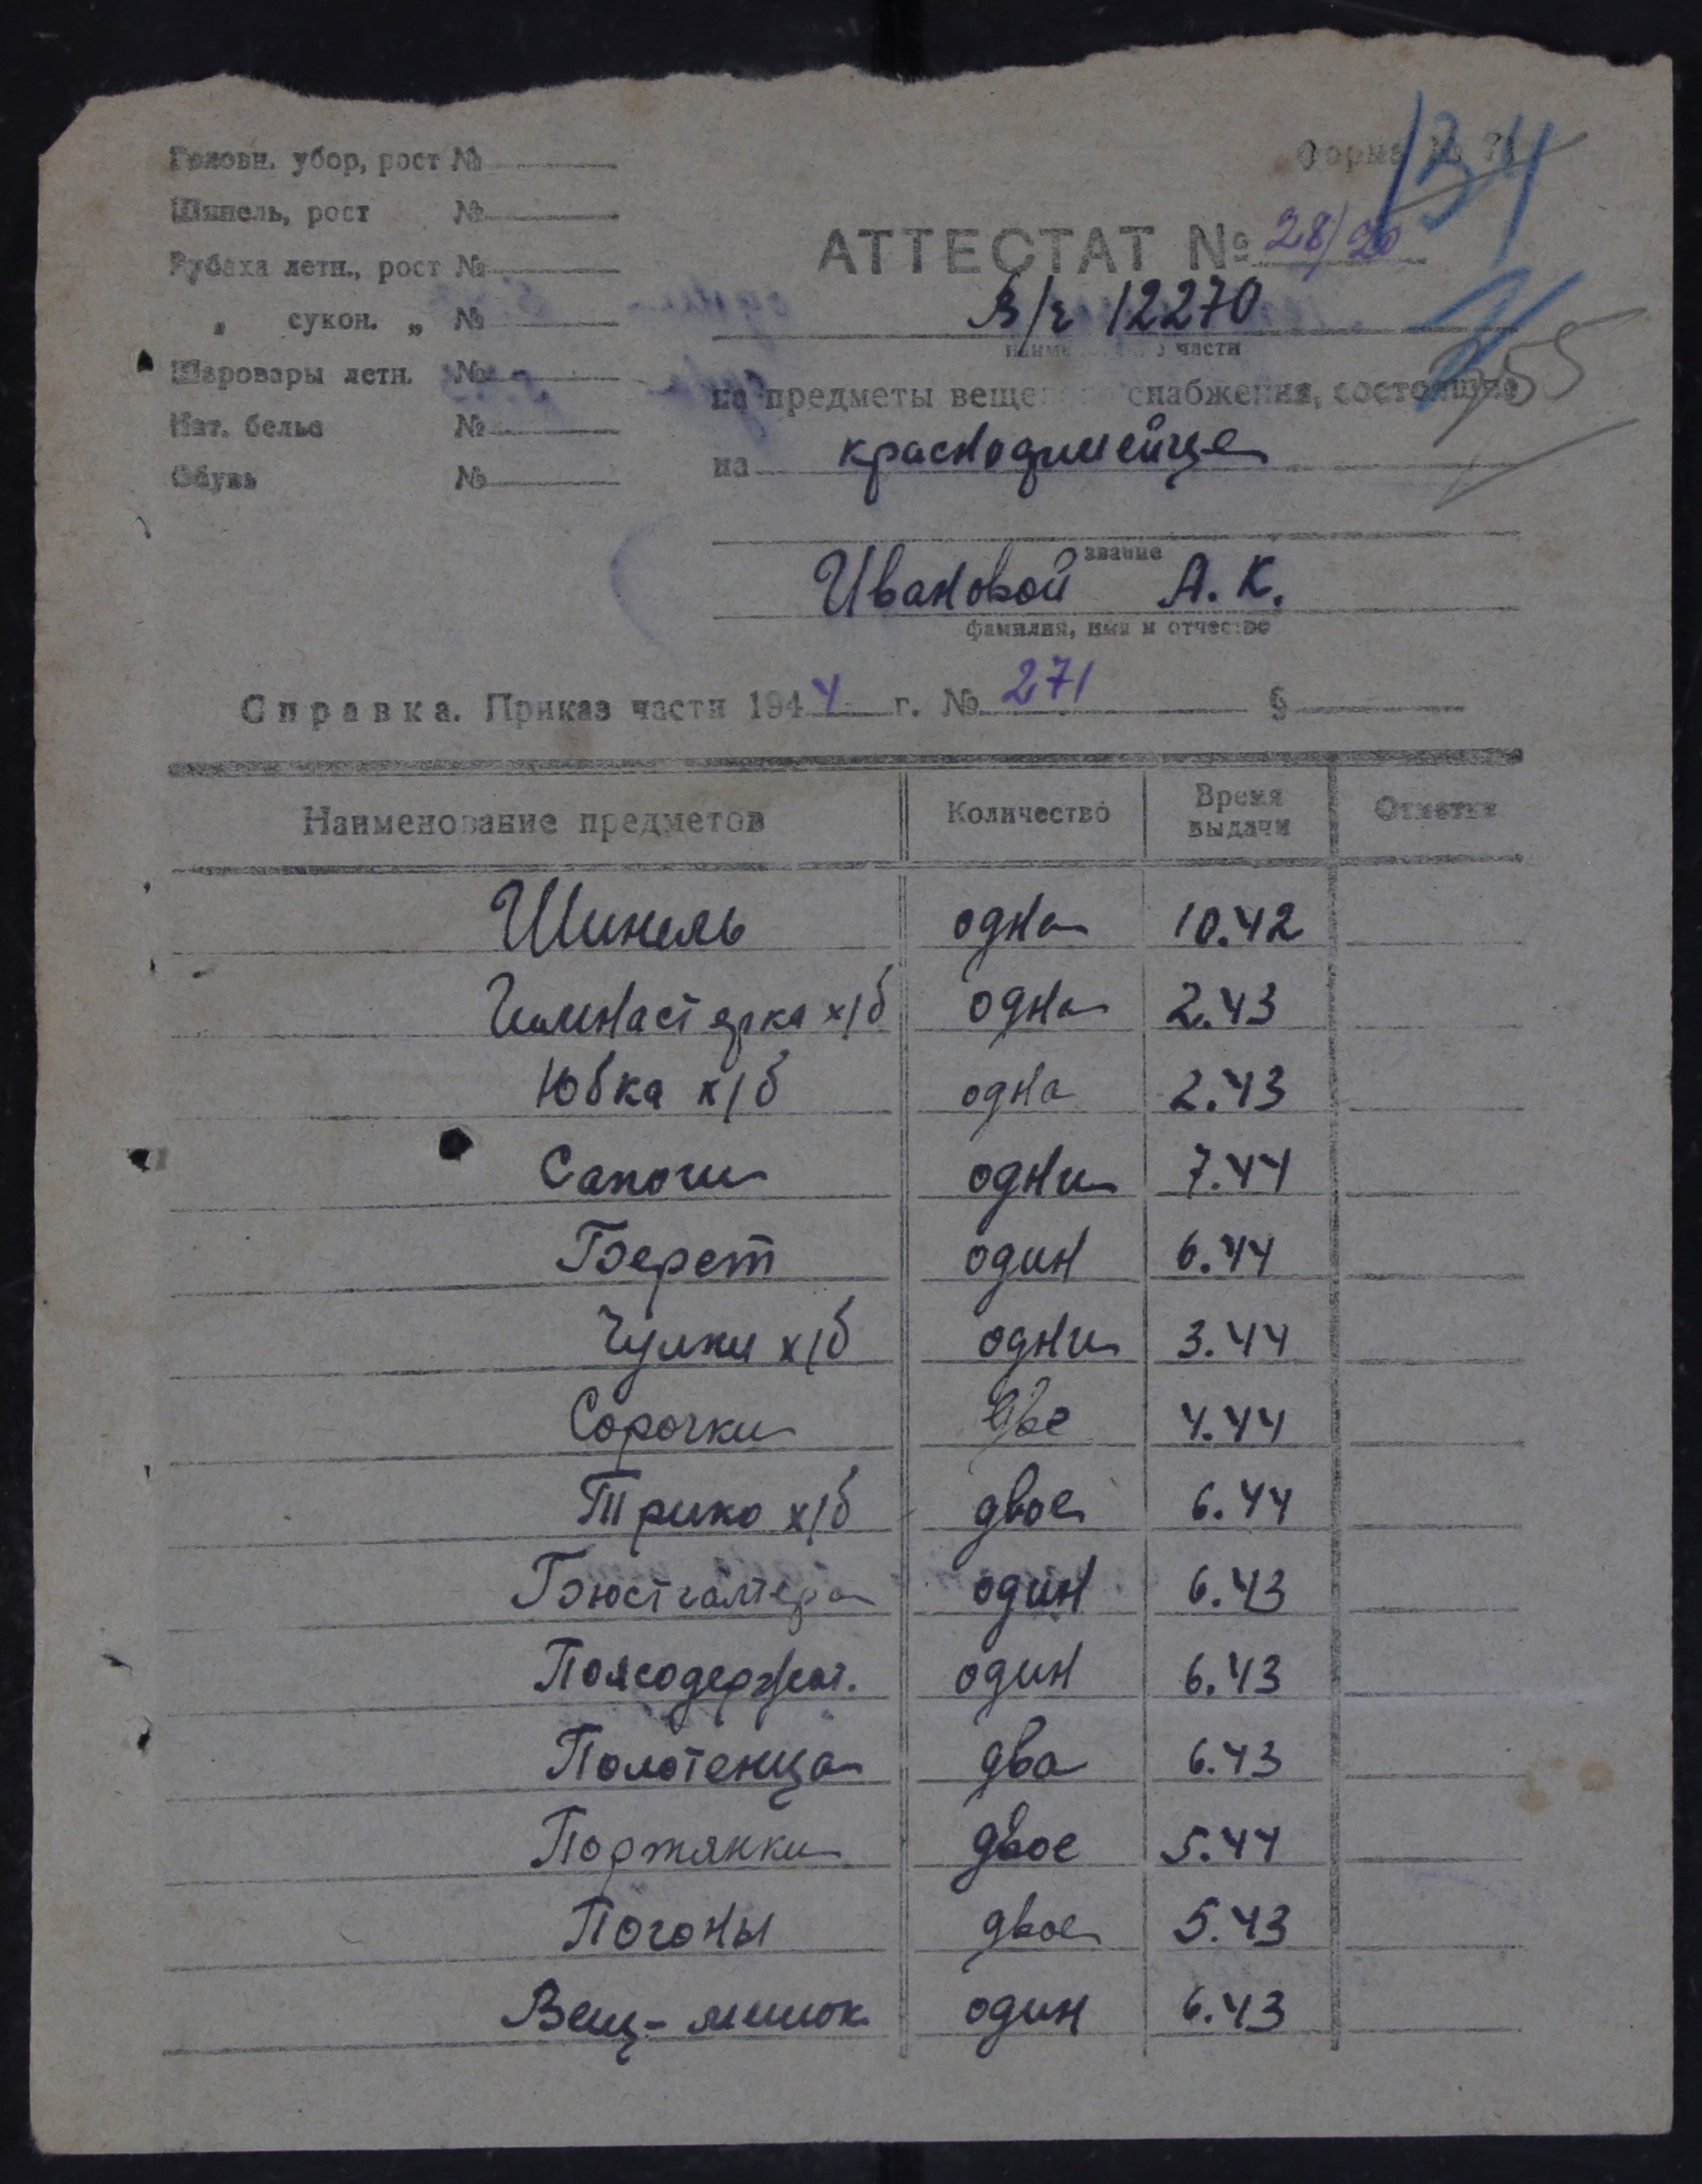 Головн. убор, рост №
Шинель, рост №
Рубаха летн., рост №
" сукон. " №
Шаровары летн. №
Нат. белье №
Обувь №
Форма №
134
АТТЕСТАТ № 28/20
В/ч 12270
части
255
на предметы вещевого снабжения, состоящие
на красноармейце
звание
Ивановой А. К.
фамилия, имя и отчество
Справка. Приказ части 1944 г. № 271 §
Наименование предметов Количество Время выдачи Отметки
Шинель одна 10.42
Гимнастерка х/б одна 2.43
Юбка х/б одна 2.43
Сапоги одни 7.44
Берет один 6.44
Чулки х/б одни 3.44
Сорочки две 4.44
Трико х/б двое 6.44
Бюстгалтера один 6.43
Поясодержат. один 6.43
Полотенца два 6.43
Портянки двое 5.44
Погоны двое 5.43
Вещ-мешок один 6.43